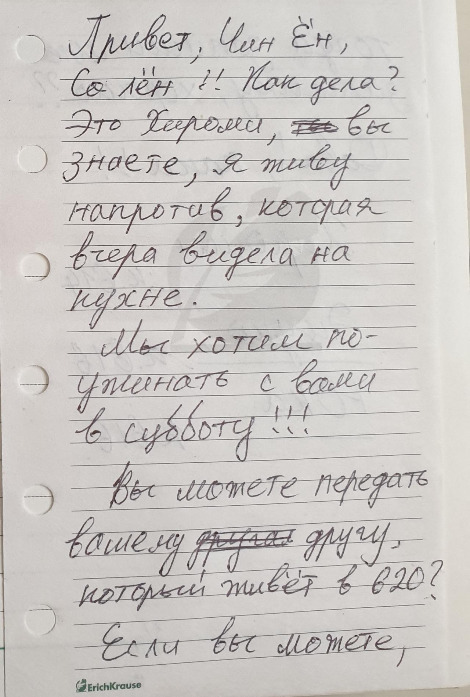 Привет, Чин Ён,
Со лён !! Как дела?
Это Хироми, вы
знаете, я живу
напротив, которая
вчера видела на
кухне.
Мы хотим по-
ужинать с вами
в субботу!!!
Вы можете передать
вашему другу,
который живёт в 620?
Если вы можете,
ErichKrause